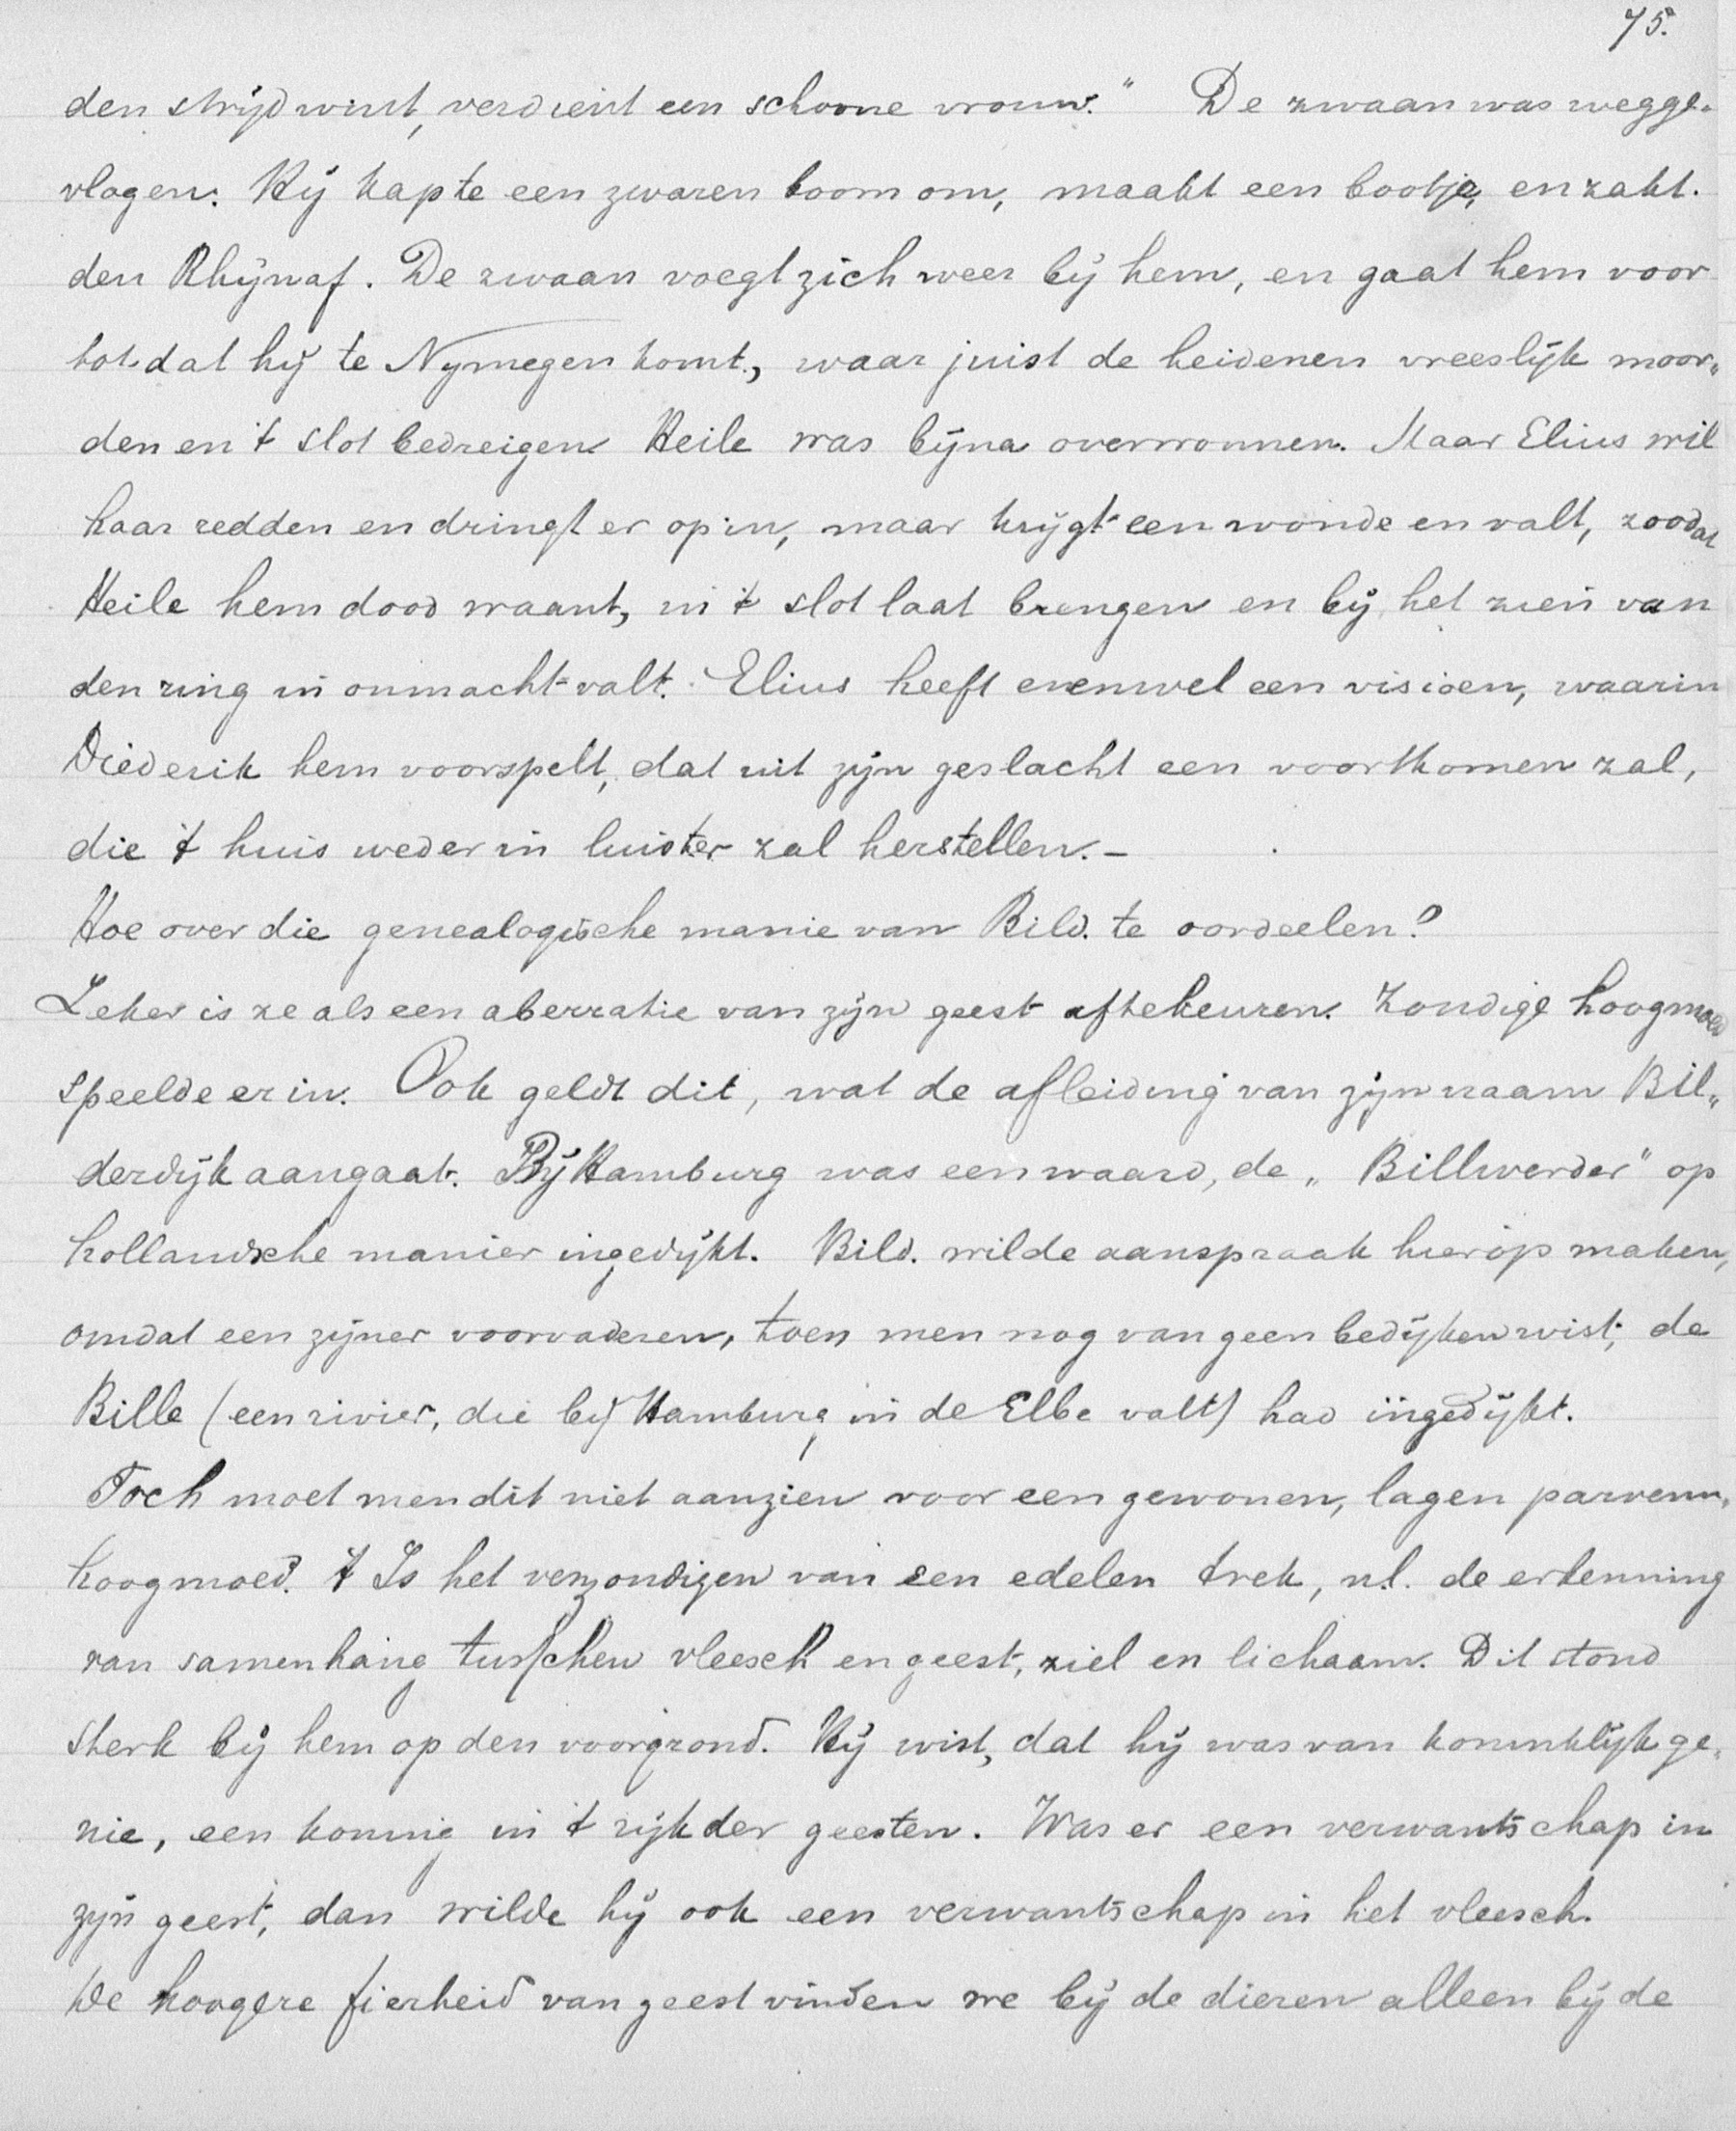 75.
den strijd wint, verdient een schoone vrouw." De zwaan was wegge-
vlogen. Hij kapte een zwaren boom om, maakt een bootje, en zakt.
den Rhijn af. De zwaan voegt zich weer bij hem, en gaat hem voor
totdat hij te Nymegen komt, waar juist de heidenen vreeslijk moor„
den en 't slot bedreigen Heile was bijna overwonnen. Maar Elius wil
haar redden en dringt er op in, maar krijgt een wonde en valt, zoodat
Heile hem dood waant, in 't slot laat brengen en bij het zien van
den ring in onmacht valt. Elius heeft evenwel een visioen, waarin
Diederik hem voorspelt, dat uit zijn geslacht een voortkomen zal,
die 't huis weder in luister zal herstellen.-
Hoe over die genealogische manie van Bild. te oordeelen?
Zeker is ze als een aberratie van zijn geest aftekeuren. Zondige hoogmoed
speelde er in. Ook geldt dit, wat de afleiding van zijn naam Bil„
derdijk aangaat. Bij Hamburg was een waard, de „Billwerder" op
hollandsche manier ingedijkt. Bild. wilde aanspraak hierop maken,
omdat een zijner voorvaderen, toen men nog van geen bedijken wist, de
Bille (een rivier, die bij Hamburg in de Elbe valt) had ingedijkt.
Toch moet men dit niet aanzien voor een gewonen, lagen parvenu„
hoogmoed. 't Is het verzondigen van een edelen trek, n.l. de erkenning
van samenhang tusschen vleesch en geest, ziel en lichaam. Dit stond
sterk bij hem op den voorgrond. Hij wist, dat hij was van koninklijk ge„
nie, een koning in 't rijk der geesten. Was er een verwantschap in
zijn geest, dan wilde hij ook een verwantschap in het vleesch.
De hoogere fierheid van geest vinden we bij de dieren alleen bij de